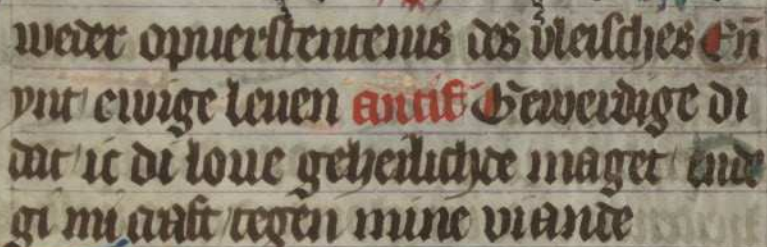 weder opuerstentenis des vleisches Eñ
ynt ewige leuen antif Gewerdige di
dat ic di loue geheilichde maget ende
gi mi craft tegen mine viande